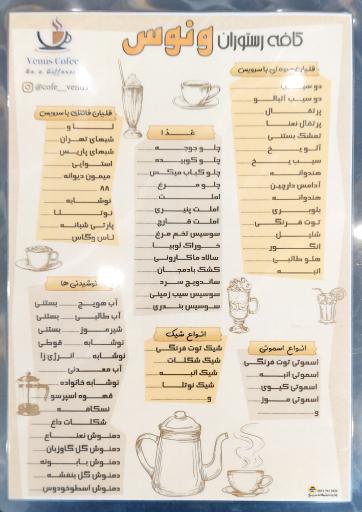 کافه رستوران ونوس
Venus Cofee
Be a Different
@cofe__venus
قلیان میوه ای با سرویس
دو سیب
دو سیب آلبالو
پرتقال
پرتقال نعنا
تمشک بستنی
آلو یخ
سیب یخ
هندوانه
آدامس دارچین
هندوانه
بلوبری
توت فرنگی
شلیل
انگور
هلو طالبی
انبه
قلیان فانتزی با سرویس
لاو
شبهای تهران
شبهای پاریس
استوایی
میمون دیوانه
۸۸
نوشابه
نوتلا
پارتی شبانه
لاس وگاس
غذا
چلو جوجه
چلو کوبیده
چلو کباب میکس
چلو مرغ
املت
املت پنیری
املت قارچ
سوسیس تخم مرغ
خوراک لوبیا
سالاد ماکارونی
کشک بادمجان
ساندویچ سرد
سوسیس سیب زمینی
سوسیس بندری
نوشیدنی ها
آب هویج بستنی
آب طالبی بستنی
شیرموز بستنی
نوشابه قوطی
نوشابه انرژی زا
آب معدنی
نوشابه خانواده
قهوه اسپرسو
نسکافه
شکلات داغ
دمنوش نعناع
دمنوش گل گاوزبان
دمنوش بابونه
دمنوش گل بنفشه
دمنوش اسطوخودوس
انواع شیک
شیک توت فرنگی
شیک شکلات
شیک انبه
شیک نوتلا
و
انواع اسموتی
اسموتی توت فرنگی
اسموتی انبه
اسموتی کیوی
اسموتی موز
و